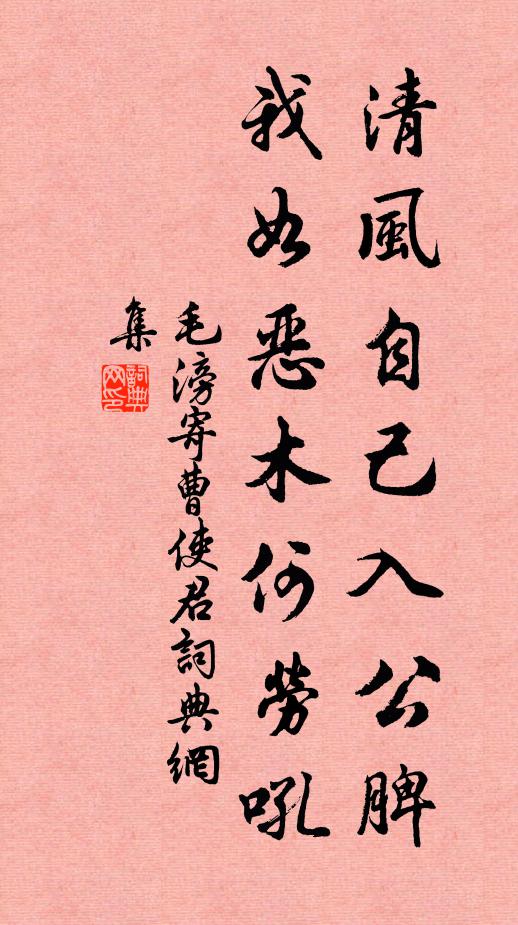 清風自已入公脾
我如惡木何勞吼
毛滂寄曹使君詞典網
集
詞典
网印